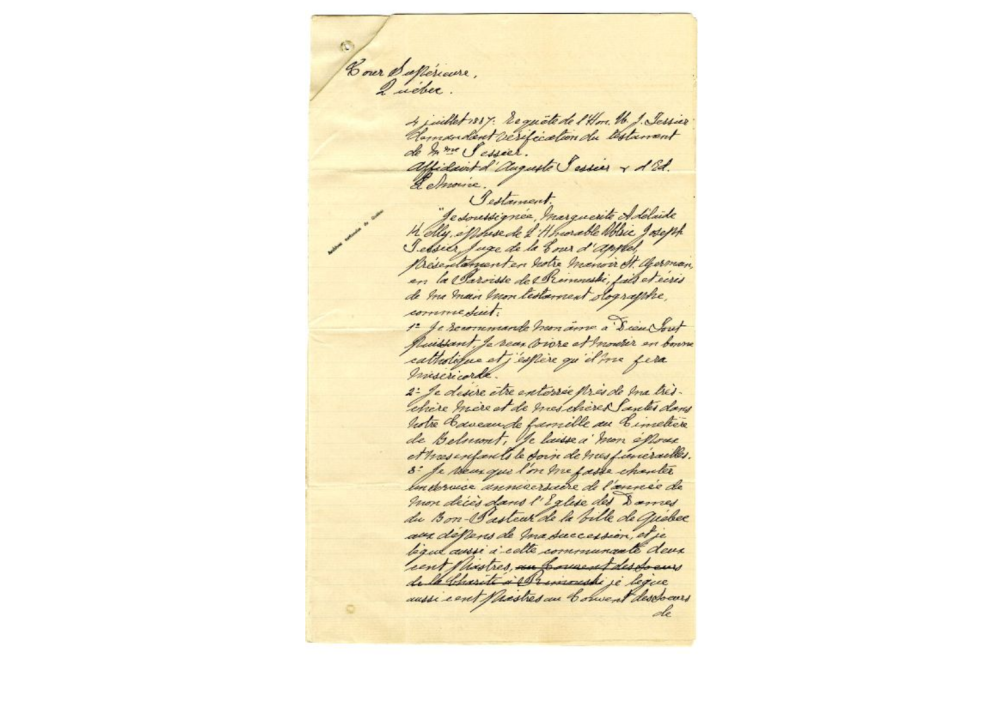 Cour Supérieure,
Québec.
4 juillet 1887: Requête de l'Hon. U. J. Tessier
demandant vérification du testament
de Mme Tessier.
Affidavit d'Auguste Tessier & d'Ed.
Lemoine.
Testament.
"Je soussignée, Marguerite Adélaide
Kelly, épouse de l'Honorable Ulric Joseph
Tessier Juge de la Cour d'Appel,
présentement en notre manoir St. Germain,
en la Paroisse de Rimouski, fais et écris
de ma main mon testament olographe,
comme suit:
1º Je recommande mon âme à Dieu Tout
Puissant. Je veux vivre et mourir en bonne
catholique et j'espère qu'il me fera
miséricorde.
2º Je désire être enterrée près de ma très-
chère Mère et de mes chères Tantes dans
notre Caveau de famille au Cimetière
de Belmont; Je laisse à mon époux
et mes enfants le soin de mes funérailles.
3º Je veux que l'on me fasse chanter
un service anniversaire de l'année de
mon décès dans l'Eglise des Dames
du Bon-Pasteur de la ville de Québec
aux dépens de ma succession, et je
lègue aussi à cette communauté deux
cent piastres, au Couvent des Soeurs
de la Charité à Rimouski je lègue
aussi cent piastres au Couvent des Soeurs
de